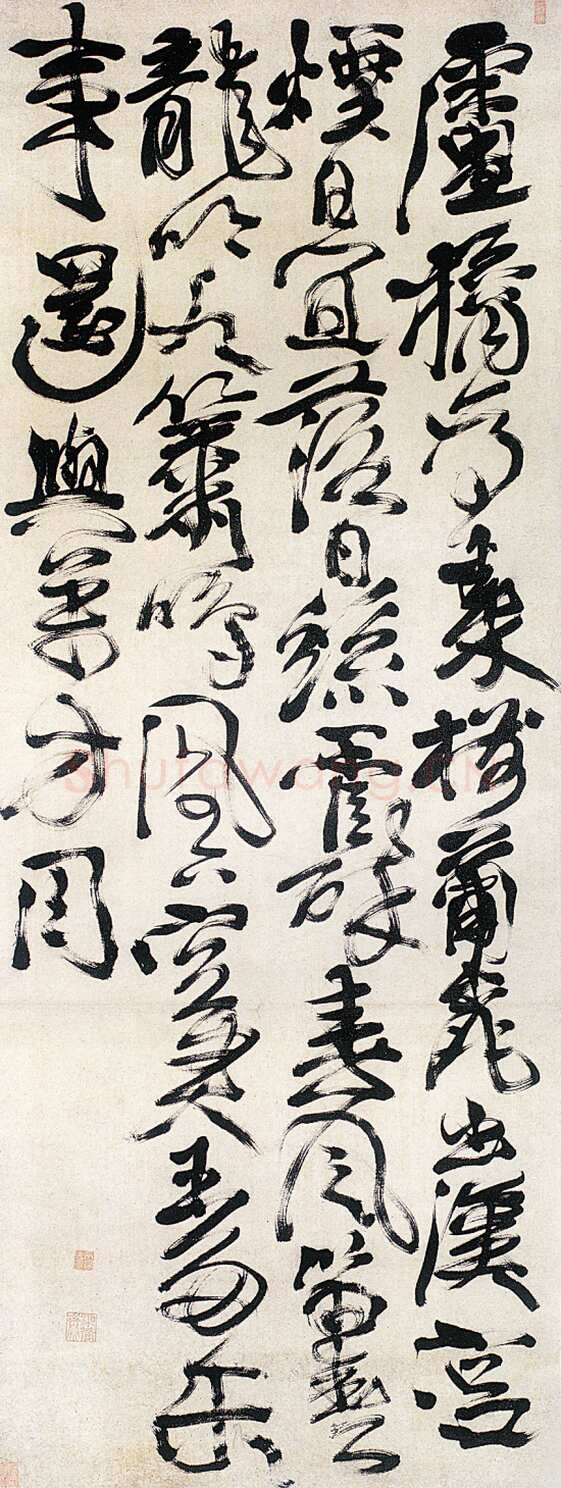 盧橘為秦樹蒲桃出漢宮
煙日宜落日絲管醉春風笛奏
龍吟水簫鳴鳳下空君王多樂
事還與萬方同
Shufawang.CN